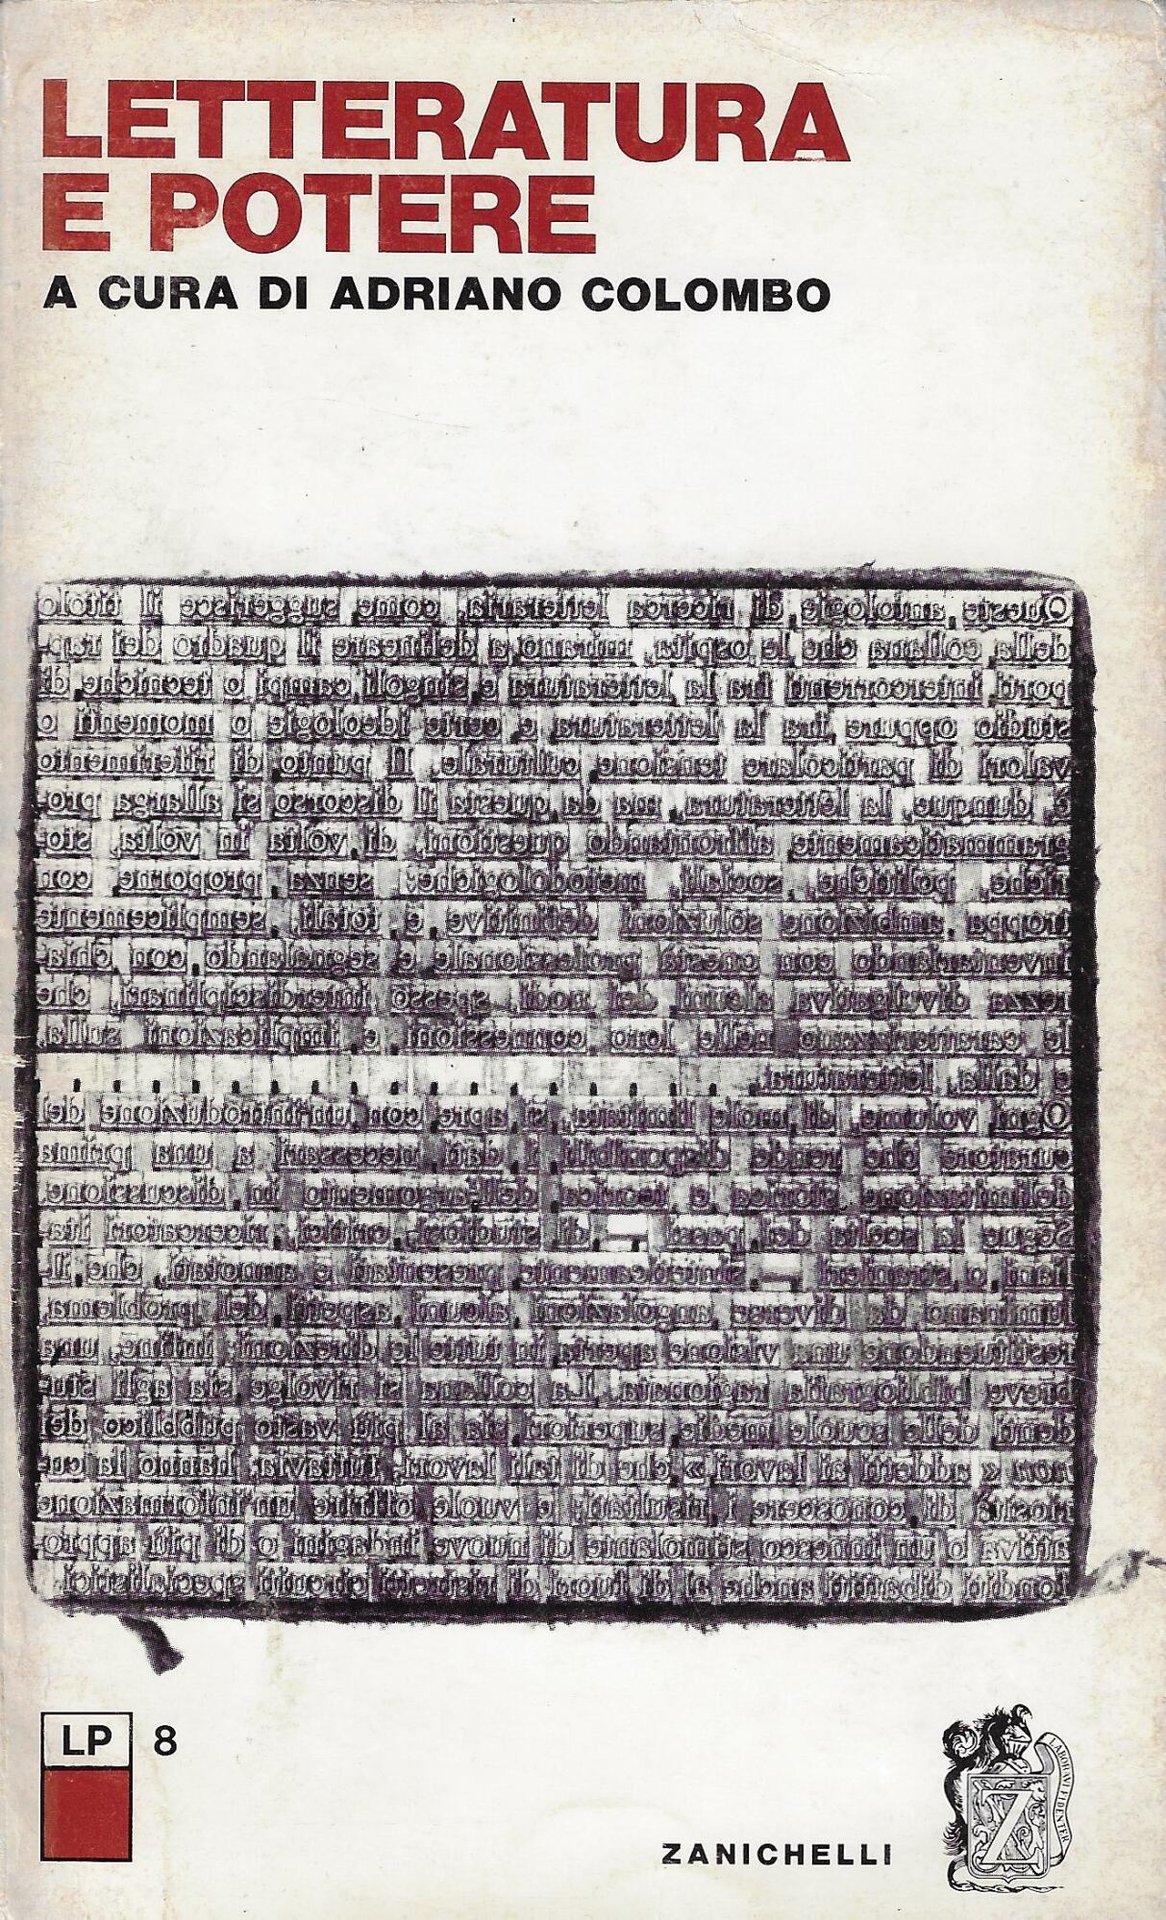 LETTERATURA
E POTERE
A CURA DI ADRIANO COLOMBO
Queste antologie di ricerca letteraria, come suggerisce il titolo
della collana che le ospita, mirano a delineare il quadro dei rap-
porti intercorrenti fra la letteratura e singoli campi o tecniche di
studio oppure fra la letteratura e certe ideologie o momenti o
valori di particolare tensione culturale. Il punto di riferimento
è dunque la letteratura, ma da questa il discorso si allarga pro-
grammaticamente affrontando questioni, di volta in volta, sto-
riche, politiche, sociali, metodologiche; senza proporne, con
troppa ambizione soluzioni definitive e totali, semplicemente
inventariando con onestà professionale e segnalando con chia-
rezza divulgativa alcuni dei nodi, spesso interdisciplinari, che
le caratterizzano nelle loro connessioni e implicazioni sulla,
e dalla, letteratura.
Ogni volume, di mole limitata, si apre con un'introduzione del
curatore che rende disponibili i dati necessari a una prima
delimitazione storica e teorica dell'argomento in discussione.
Segue la scelta dei passi — di studiosi, critici, ricercatori ita-
liani o stranieri — sinteticamente presentati e annotati, che il-
luminano da diverse angolazioni alcuni aspetti del problema,
restituendone una visione aperta in tutte le direzioni; infine, una
breve bibliografia ragionata. La collana si rivolge sia agli stu-
denti delle scuole medie superiori sia al più vasto pubblico dei
non « addetti ai lavori » che di tali lavori, tuttavia, hanno la cu-
riosità di conoscere i risultati; e vuole offrire un'informazione
attiva o un innesco stimolante di nuove indagini o di più appro-
fonditi dibattiti anche al di fuori di ristretti circuiti specialistici.
LP 8
ZANICHELLI
LABORAVI FIDENTER
Z